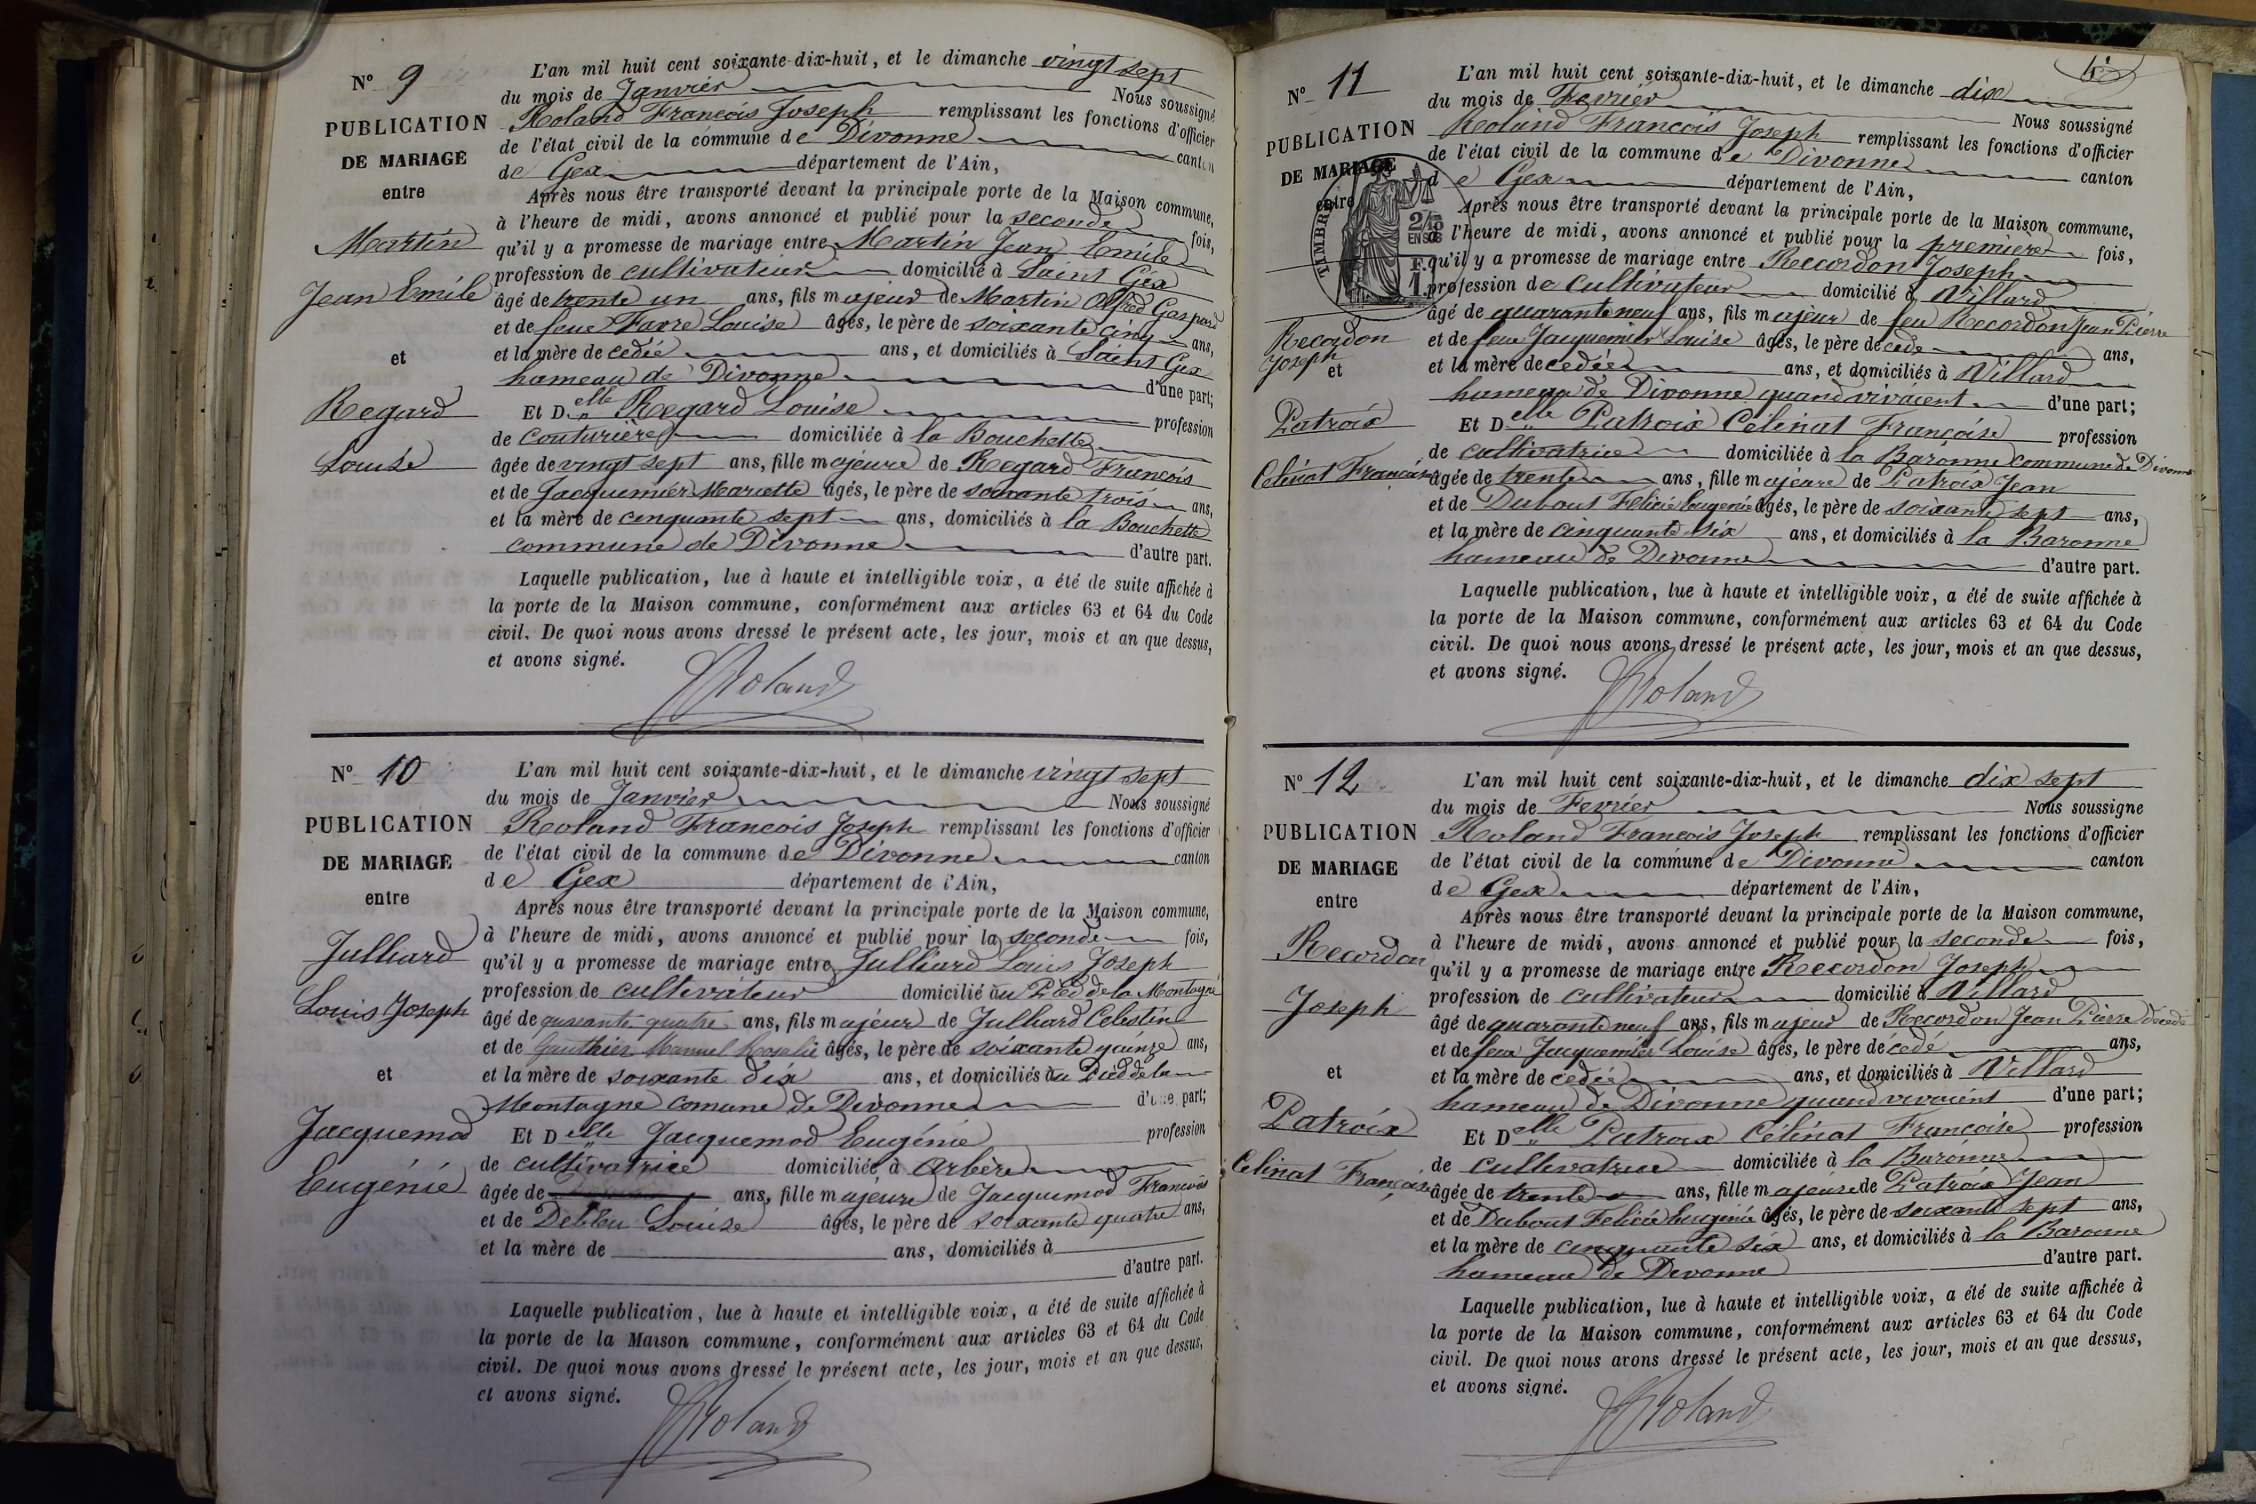 N° 9
PUBLICATION
DE MARIAGE
entre
Martin
Jean Emile
et
Regard
Louise
L'an mil huit cent soixante-dix-huit, et le dimanche vingt sept
du mois de Janvier Nous soussigné
Roland Francois Joseph remplissant les fonctions d'officier
de l'état civil de la commune de Divonne canton
de Gex département de l'Ain,
Après nous être transporté devant la principale porte de la Maison commune,
à l'heure de midi, avons annoncé et publié pour la seconde fois,
qu'il y a promesse de mariage entre Martin Jean Emile
profession de cultivateur domicilié à Saint Gix
âgé de trente un ans, fils majeur de Martin Alfred Gaspard
et de feue Favre Louise âgés, le père de soixante cinq ans,
et la mère de cedée ans, et domiciliés à Saint Gix
hameau de Divonne d'une part;
Et Delle Regard Louise profession
de couturière domiciliée à la Bouchette
âgée de vingt sept ans, fille majeure de Regard Francois
et de Jacquemier Mariette âgés, le père de soixante trois ans,
et la mère de cinquante sept ans, domiciliés à la Bouchette
commune de Divonne d'autre part.
Laquelle publication, lue à haute et intelligible voix, a été de suite affichée à
la porte de la Maison commune, conformément aux articles 63 et 64 du Code
civil. De quoi nous avons dressé le présent acte, les jour, mois et an que dessus,
et avons signé.
Roland
N° 10
PUBLICATION
DE MARIAGE
entre
Julliard
Louis Joseph
et
Jacquemod
Eugénie
L'an mil huit cent soixante-dix-huit, et le dimanche vingt sept
du mois de Janvier Nous soussigné
Roland Francois Joseph remplissant les fonctions d'officier
de l'état civil de la commune de Divonne canton
de Gex département de l'Ain,
Après nous être transporté devant la principale porte de la Maison commune,
à l'heure de midi, avons annoncé et publié pour la seconde fois,
qu'il y a promesse de mariage entre Julliard Louis Joseph
profession de cultivateur domicilié au Pied de la Montagne
âgé de quarante quatre ans, fils majeur de Julliard Celestin
et de Gauthier Manuel Rosalie âgés, le père de soixante quinze ans,
et la mère de soixante dix ans, et domiciliés au Pied de la
Montagne comune de Divonne d'une part;
Et Delle Jacquemod Eugénie profession
de cultivatrice domiciliée à Arbère
âgée de ans, fille majeure de Jacquemod Francois
et de Deblu Louise âgés, le père de soixante quatre ans,
et la mère de ans, domiciliés à
d'autre part.
Laquelle publication, lue à haute et intelligible voix, a été de suite affichée à
la porte de la Maison commune, conformément aux articles 63 et 64 du Code
civil. De quoi nous avons dressé le présent acte, les jour, mois et an que dessus,
et avons signé.
Roland
N° 11
PUBLICATION
DE MARIAGE
entre
TIMBRE
2/10
EN SUS
F.
1.
Recordon
Joseph
et
Patroix
Celinat Francoise
L'an mil huit cent soixante-dix-huit, et le dimanche dix
du mois de Fevrier Nous soussigné
Roland Francois Joseph remplissant les fonctions d'officier
de l'état civil de la commune de Divonne canton
de Gex département de l'Ain,
Après nous être transporté devant la principale porte de la Maison commune,
à l'heure de midi, avons annoncé et publié pour la premiere fois,
qu'il y a promesse de mariage entre Recordon Joseph
profession de cultivateur domicilié à Villard
âgé de quarante neuf ans, fils majeur de feu Recordon Jean Pierre
et de feue Jacquemier Louise âgés, le père de cede ans,
et la mère de cedée ans, et domiciliés à Villard
hameau de Divonne quand vivaient d'une part;
Et Delle Patroix Célinat Françoise profession
de cultivatrice domiciliée à la Baronne commune de Divonne
âgée de trente ans, fille majeure de Patroix Jean
et de Dubout Felicie Eugenie âgés, le père de soixante sept ans,
et la mère de cinquante six ans, et domiciliés à la Baronne
hameau de Divonne d'autre part.
Laquelle publication, lue à haute et intelligible voix, a été de suite affichée à
la porte de la Maison commune, conformément aux articles 63 et 64 du Code
civil. De quoi nous avons dressé le présent acte, les jour, mois et an que dessus,
et avons signé.
Roland
N° 12
PUBLICATION
DE MARIAGE
entre
Recordon
Joseph
et
Patroix
Celinat Françoise
L'an mil huit cent soixante-dix-huit, et le dimanche dix sept
du mois de Fevrier Nous soussigné
Roland Francois Joseph remplissant les fonctions d'officier
de l'état civil de la commune de Divonne canton
de Gex département de l'Ain,
Après nous être transporté devant la principale porte de la Maison commune,
à l'heure de midi, avons annoncé et publié pour la seconde fois,
qu'il y a promesse de mariage entre Recordon Joseph
profession de cultivateur domicilié à Villard
âgé de quarante neuf ans, fils majeur de Recordon Jean Pierre décédé
et de feue Jacquemier Louise âgés, le père de cedé ans,
et la mère de cedée ans, et domiciliés à Villard
hameau de Divonne quand vivaient d'une part;
Et Delle Patroix Célinat Francoise profession
de cultivatrice domiciliée à la Baronne
âgée de trente ans, fille majeure de Patroix Jean
et de Dubout Felicie Eugenie âgés, le père de soixante sept ans,
et la mère de cinquante six ans, et domiciliés à la Baronne
hameau de Divonne d'autre part.
Laquelle publication, lue à haute et intelligible voix, a été de suite affichée à
la porte de la Maison commune, conformément aux articles 63 et 64 du Code
civil. De quoi nous avons dressé le présent acte, les jour, mois et an que dessus,
et avons signé.
Roland